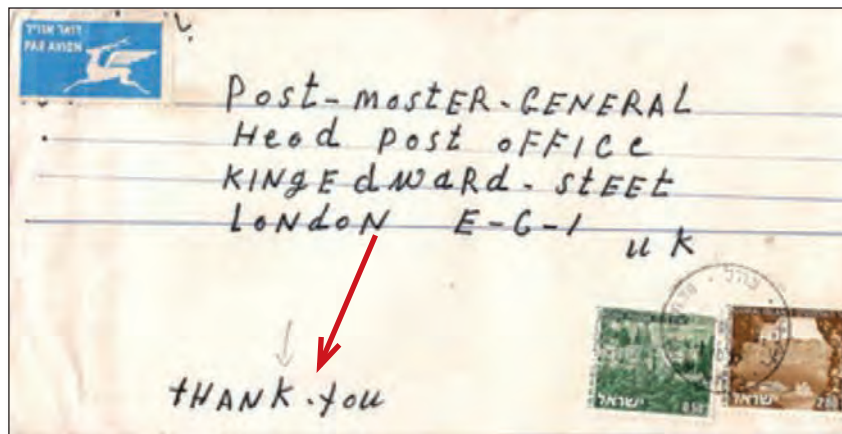 דואר אוויר
PAR AVION
Post-mosTER-GENERAL
Heod post oFFICe
KINgE dwaRd-stEET
LoNdoN E-G-1
u k
tHANK.you
ישראל 0.50
ישראל 2.00